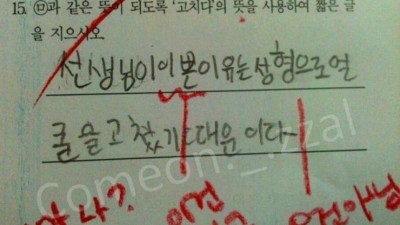 15. ㉤과 같은 뜻이 되도록 '고치다'의 뜻을 사용하여 짧은 글
을 지으시오.
선생님이 이쁜이유는 성형으로 얼
굴을 고쳤기 때문이다~
Comeon._.zzal
나?